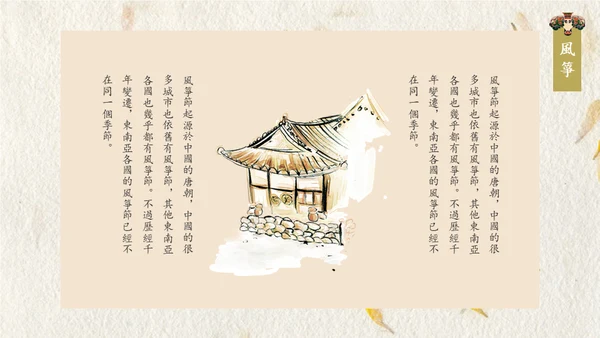 風箏
風箏節起源於中國的唐朝，中國的很
多城市也依舊有風箏節，其他東南亞
各國也幾乎都有風箏節。不過歷經千
年變遷，東南亞各國的風箏節已經不
在同一個季節。
風箏節起源於中國的唐朝，中國的很
多城市也依舊有風箏節，其他東南亞
各國也幾乎都有風箏節。不過歷經千
年變遷，東南亞各國的風箏節已經不
在同一個季節。